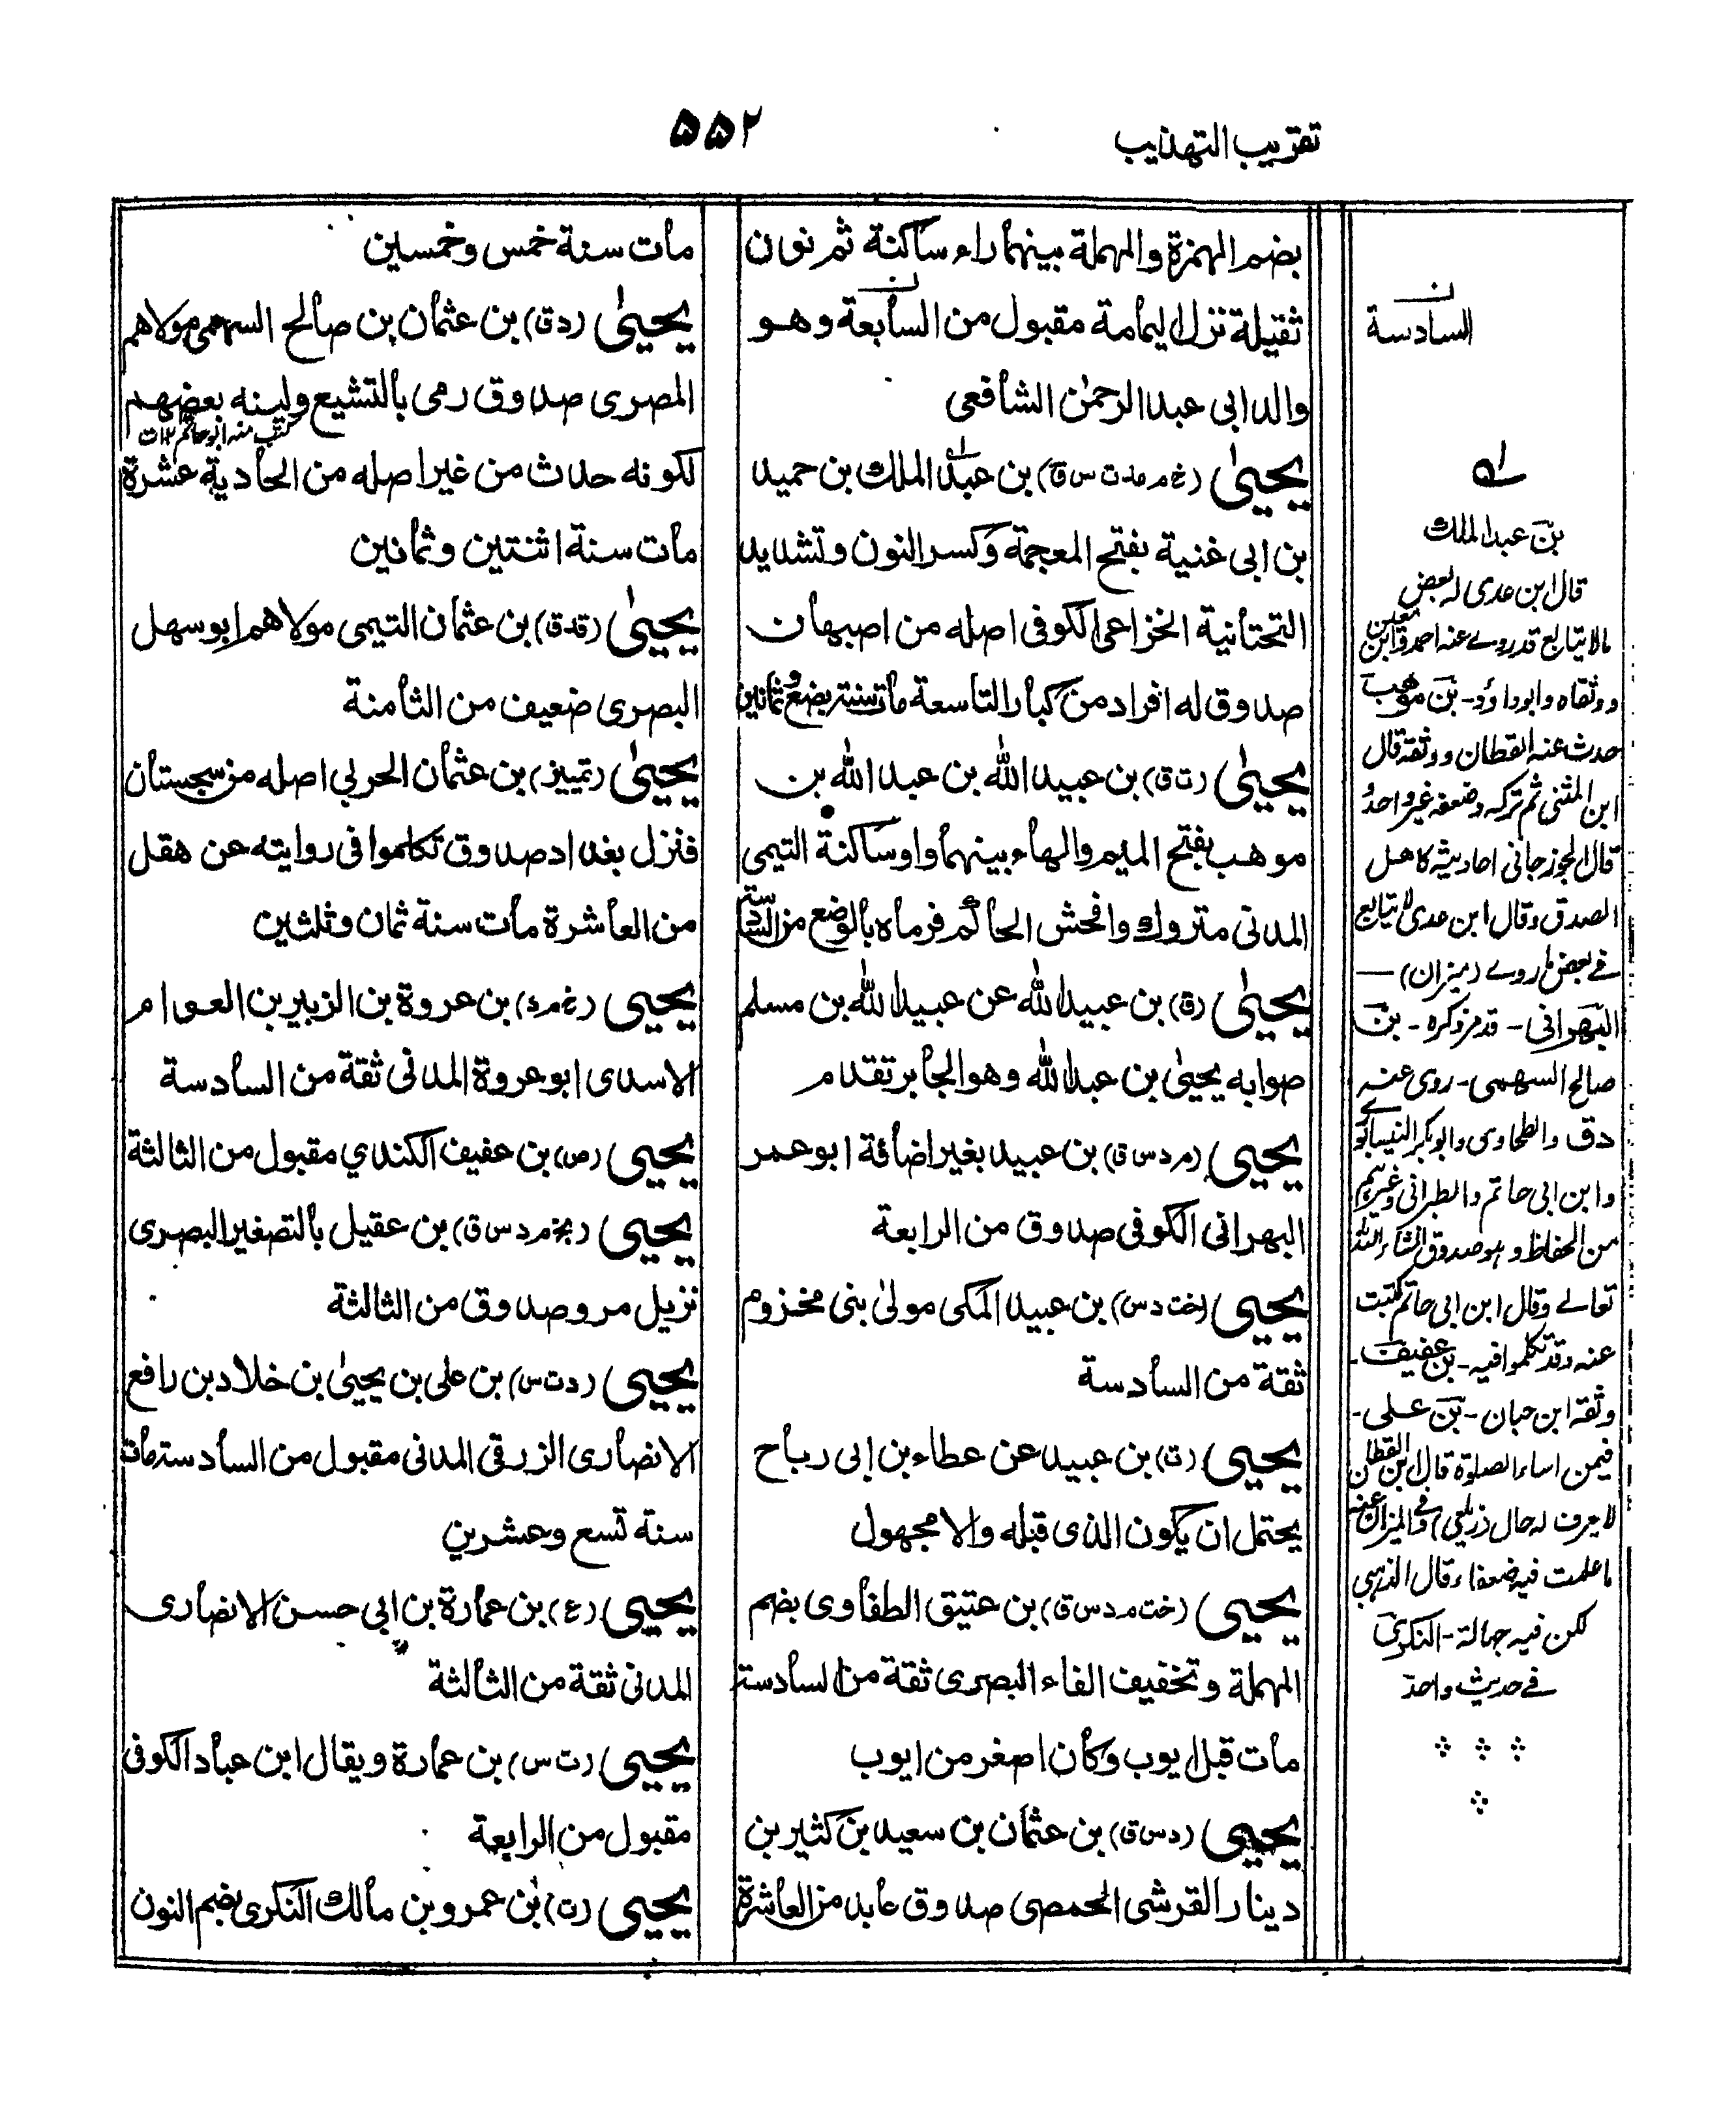 تقريب التهذيب
٥٥٢
بضم الهمزة والمهملة بينهما راء ساكنة ثم نون
ثقيلة نزل اليمامة مقبول من السابعة وهو
والد ابى عبد الرحمٰن الشافعى
يحيىٰ (خ م مد ت س ق) بن عبد الملك بن حميد
بن ابى غنية بفتح المعجمة وكسر النون وتشديد
التحتانية الخزاعى الكوفى اصله من اصبهان
صدوق له افراد من كبار التاسعة مات سنة بضع وثمانين
يحيىٰ (ت ق) بن عبيد الله بن عبد الله بن
موهب بفتح الميم والهاء بينهما واو ساكنة التيمى
المدنى متروك وافحش الحاكم فرماه بالوضع من السادسة
يحيىٰ (ق) بن عبيد الله عن عبيد الله بن مسلم
صوابه يحيىٰ بن عبد الله وهو الجابر تقدم
يحيى (م د س ق) بن عبيد بغير اضافة ابو عمر
البهرانى الكوفى صدوق من الرابعة
يحيى (خت د س) بن عبيد المكى مولىٰ بنى مخزوم
ثقة من السادسة
يحيى (ت) بن عبيد عن عطاء بن ابى رباح
يحتمل ان يكون الذى قبله والا مجهول
يحيى (خت م د س ق) بن عتيق الطفاوى بضم
المهملة وتخفيف الفاء البصرى ثقة من السادسة
مات قبل ايوب وكان اصغر من ايوب
يحيى (د س ق) بن عثمان بن سعيد بن كثير بن
دينار القرشى الحمصى صدوق عابد من العاشرة
مات سنة خمس وخمسين
يحيىٰ (د ق) بن عثمان بن صالح السهمى مولاهم
المصرى صدوق رمى بالتشيع ولينه بعضهم
كتب منه ابو حاتم ١٢ ت
لكونه حدث من غير اصله من الحادية عشرة
مات سنة اثنتين وثمانين
يحيىٰ (قد ق) بن عثمان التيمى مولاهم ابو سهل
البصرى ضعيف من الثامنة
يحيىٰ (تمييز) بن عثمان الحربي اصله من سجستان
فنزل بغداد صدوق تكلموا فى روايته عن هقل
من العاشرة مات سنة ثمان وثلثين
يحيى (خ م د) بن عروة بن الزبير بن العوام
الاسدى ابو عروة المدنى ثقة من السادسة
يحيى (ص) بن عفيف الكندي مقبول من الثالثة
يحيى (بخ م د س ق) بن عقيل بالتصغير البصرى
نزيل مرو صدوق من الثالثة
يحيى (د ت س) بن على بن يحيىٰ بن خلاد بن رافع
الانصارى الزرقى المدنى مقبول من السادسة مات
سنة تسع وعشرين
يحيى (ع) بن عمارة بن ابي حسن الانصارى
المدنى ثقة من الثالثة
يحيى (ت س) بن عمارة ويقال ابن عباد الكوفى
مقبول من الرابعة
يحيى (ت) بن عمرو بن مالك النكرى بضم النون
ن
السادسة
بن عبد الملك
قال ابن عدى له بعض
مالا يتابع قد روے عنه احمد وابن معين
ووثقاه وابو داؤد - بن موهب
حدث عنه القطان ووثقه قال
ابن المثنى ثم تركه وضعفه غير واحد و
قال الجوزجانى احاديثه كاهل
الصدق وقال ابن عدى لا يتابع
فے بعض ما روے (ميزان) —
البهرانى - قد مر ذكره - بن
صالح السهمى - روى عنه
د ق والطحاوى وابو بكر النيسابورے
وابن ابى حاتم والطبرانى وغيرہم
من الحفاظ وہو صدوق انشاء الله
تعالے وقال ابن ابى حاتم كتبت
عنه وقد تكلموا فيه - بن عفيف -
وثقه ابن حبان - بن على -
فيمن اساء الصلوة قال ابن القطان
لا يعرف له حال (زيلعى) وفے الميزان عنه
ما علمت فيه ضعفا وقال الذہبى
لكن فيه جہالة - النكرى
فے حديث واحد